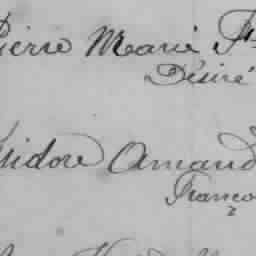 Pierre Marie Fr
Désiré
Isidore Amand
Franço